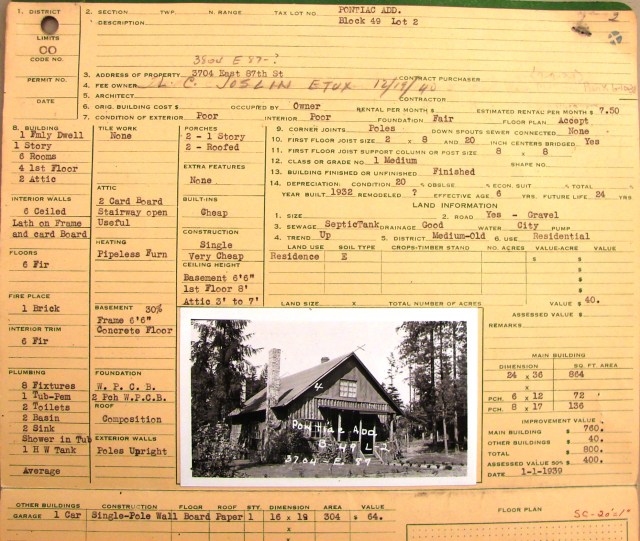 1. DISTRICT 2. SECTION TWP. N. RANGE TAX LOT NO. PONTIAC ADD.
DESCRIPTION Block 49 Lot 2 2
LIMITS
CO
CODE NO.
3804 E 87-?
3. ADDRESS OF PROPERTY 3704 East 87th St CONTRACT PURCHASER
PERMIT NO. 4. FEE OWNER L. C. JOSLIN ETUX 12/19/40
5. ARCHITECT CONTRACTOR
DATE 6. ORIG. BUILDING COST $ OCCUPIED BY Owner RENTAL PER MONTH $ ESTIMATED RENTAL PER MONTH $ 7.50
7. CONDITION OF EXTERIOR Poor INTERIOR Poor FOUNDATION Fair FLOOR PLAN Accept
8. BUILDING
1 Fmly Dwell
1 Story
6 Rooms
4 1st Floor
2 Attic
INTERIOR WALLS
6 Ceiled
Lath on Frame
and card Board
FLOORS
6 Fir
FIRE PLACE
1 Brick
INTERIOR TRIM
6 Fir
PLUMBING
8 Fixtures
1 Tub-Pem
2 Toilets
2 Basin
2 Sink
Shower in Tub
1 H W Tank
Average
TILE WORK
None
ATTIC
2 Card Board
Stairway open
Useful
HEATING
Pipeless Furn
BASEMENT 30%
Frame 6'6"
Concrete Floor
FOUNDATION
W. P. C. B.
2 Pch W.P.C.B.
ROOF
Composition
EXTERIOR WALLS
Poles Upright
PORCHES
2 - 1 Story
2 - Roofed
EXTRA FEATURES
None
BUILT-INS
Cheap
CONSTRUCTION
Single
Very Cheap
CEILING HEIGHT
Basement 6'6"
1st Floor 8'
Attic 3' to 7'
9. CORNER JOINTS Poles DOWN SPOUTS SEWER CONNECTED None
10. FIRST FLOOR JOIST SIZE 2 X 8 AND 20 INCH CENTERS BRIDGED Yes
11. FIRST FLOOR JOIST SUPPORT COLUMN OR POST SIZE 8 X 8
12. CLASS OR GRADE NO. 1 Medium SHAPE NO.
13. BUILDING FINISHED OR UNFINISHED Finished
14. DEPRECIATION: CONDITION 20 % OBSLSE. % ECON. SUIT. % TOTAL %
YEAR BUILT 1932 REMODELED ? EFFECTIVE AGE 6 YRS. FUTURE LIFE 24 YRS.
LAND INFORMATION
1. SIZE 2. ROAD Yes - Gravel
3. SEWAGE SepticTank DRAINAGE Good WATER City PUMP
4. TREND Up 5. DISTRICT Medium-Old 6. USE Residential
LAND USE SOIL TYPE CROPS-TIMBER STAND NO. ACRES VALUE-ACRE VALUE
Residence E $ $
$
$
LAND SIZE X TOTAL NUMBER OF ACRES VALUE $ 40.
ASSESSED VALUE $
REMARKS
MAIN BUILDING
DIMENSION SQ. FT. AREA
24 X 36 864
X
PCH. 6 X 12 72
PCH. 8 X 17 136
IMPROVEMENT VALUE
MAIN BUILDING $ 760.
OTHER BUILDINGS $ 40.
TOTAL $ 800.
ASSESSED VALUE 50% $ 400.
DATE 1-1-1939
4
Pontiac Add
B-49 L-2
3704 E. 87
OTHER BUILDINGS CONSTRUCTION FLOOR ROOF STY. DIMENSION AREA VALUE FLOOR PLAN SC-20'=1"
GARAGE 1 Car Single-Pole Wall Board Paper 1 16 X 19 304 $ 64.
X $